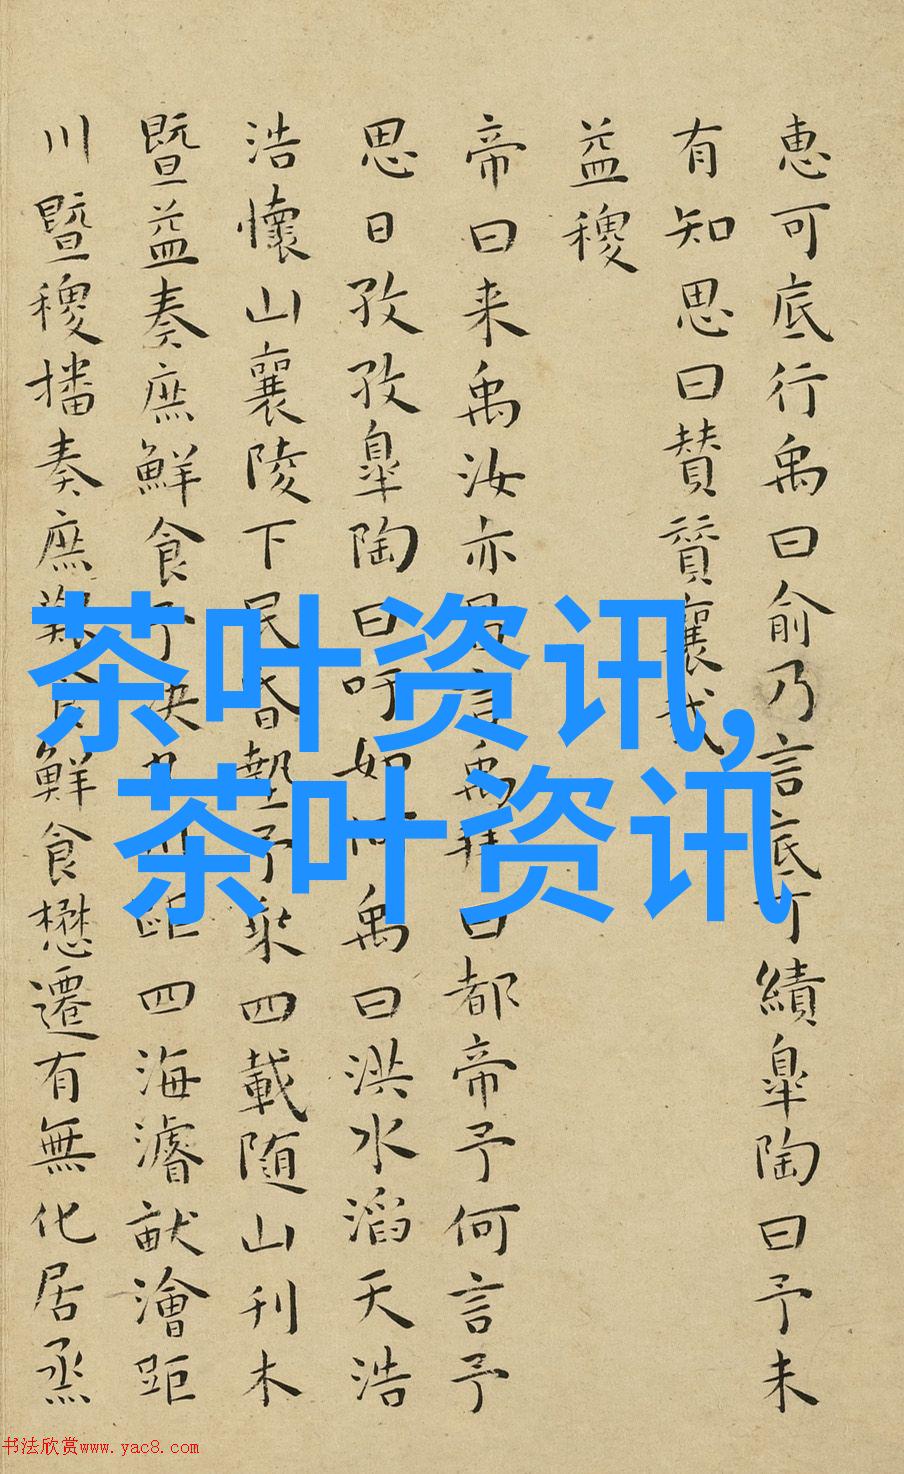 惠可底行禹曰俞乃言底可績皐陶曰予未
有知思曰賛賛襄哉
益稷
帝曰来禹汝亦昌言禹拜曰都帝予何言予
思日孜孜皐陶曰吁如何禹曰洪水滔天浩
浩懷山襄陵下民昏墊予乘四載随山刊木
暨益奏庶鮮食予决九川距四海濬畎澮距
川暨稷播奏庶艱食鮮食懋遷有無化居烝
茶叶资讯,
茶叶资讯
书法欣赏www.yac8.com